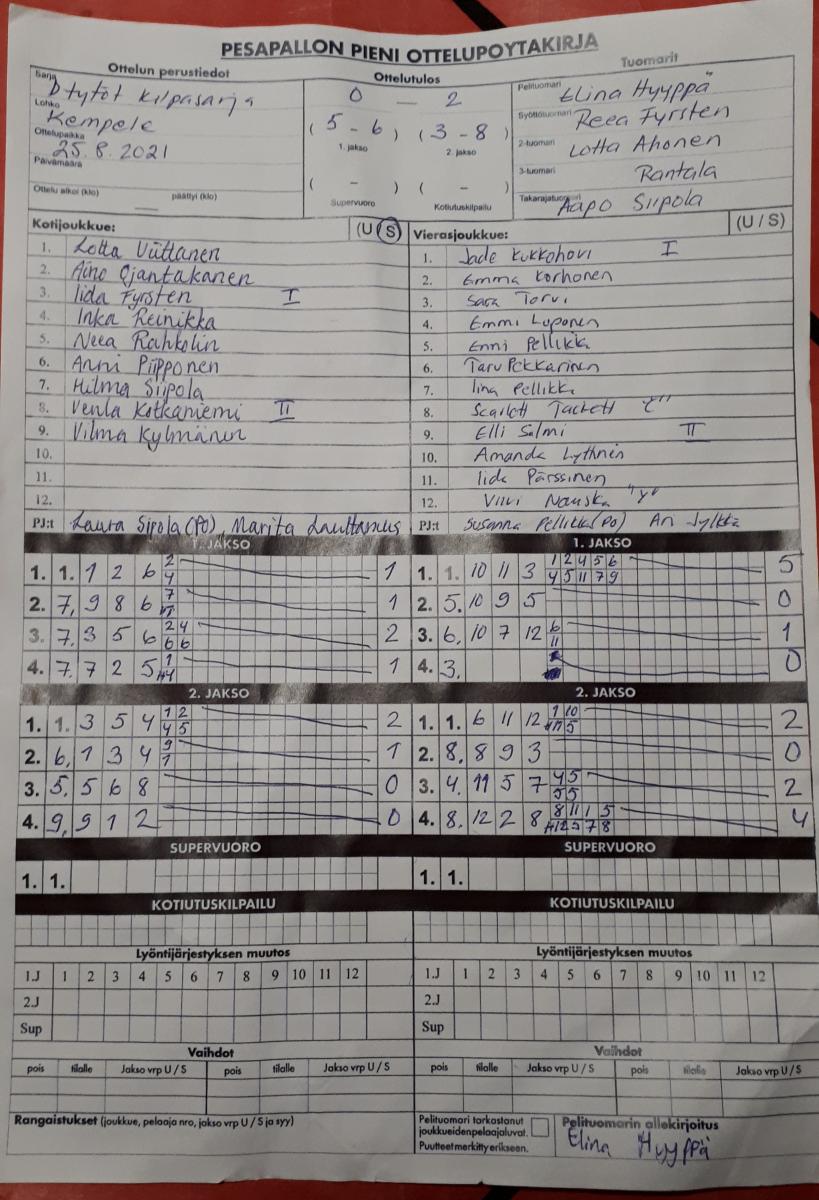 PESÄPALLON PIENI OTTELUPÖYTÄKIRJA
Ottelun perustiedot
Ottelutulos
Tuomarit
Sarja D tytöt kilpasarja
Lohko
Ottelupaikka Kempele
Päivämäärä 25.8.2021
Ottelu alkoi (klo) päättyi (klo)
0 — 2
( 5 - 6 ) ( 3 - 8 )
1. jakso 2. jakso
( - ) ( - )
Supervuoro Kotiutuskilpailu
Pelituomari Elina Hyyppä
Syöttötuomari Reea Fyrsten
2-tuomari Lotta Ahonen
3-tuomari Rantala
Takarajatuomari Aapo Siipola
Kotijoukkue: (U/S)
1. Lotta Viittanen
2. Aino Ojantakanen
3. Iida Fyrsten I
4. Inka Reinikka
5. Neea Rahkolin
6. Anni Piipponen
7. Hilma Siipola
8. Venla Kotkaniemi II
9. Vilma Kylmänen
10.
11.
12.
PJ:t Laura Sipola (PO), Marita Lauttamus
Vierasjoukkue: (U/S)
1. Jade Kukkohovi I
2. Emma Korhonen
3. Sara Torvi
4. Emmi Luponen
5. Enni Pellikka
6. Taru Pekkarinen
7. Iina Pellikka
8. Scarlett Tackett "C"
9. Elli Salmi II
10. Amanda Lythnen
11. Iida Pärssinen
12. Viivi Nauska "Y"
PJ:t Susanna Pellikka (PO) Ari Jylkkä
1. JAKSO
1. 1. 1 2 6 2 1
4
2. 7. 9 8 6 7 1
3. 7. 3 5 6 2 4 2
6 6
4. 7. 7 2 5 1 1
1. JAKSO
1. 1. 10 11 3 1 2 4 5 6 5
4 5 11 7 9
2. 5. 10 9 5 0
3. 6. 10 7 12 6 1
11
4. 3. 0
2. JAKSO
1. 1. 3 5 4 1 2 2
4 5
2. 6. 1 3 4 9 1
1
3. 5. 5 6 8 0
4. 9. 9 1 2 0
2. JAKSO
1. 1. 6 11 12 1 10 2
5
2. 8. 8 9 3 0
3. 4. 11 5 7 4 5 2
5 5
4. 8. 12 2 8 8 11 1 5 4
12 5 7 8
SUPERVUORO
1. 1.
SUPERVUORO
1. 1.
KOTIUTUSKILPAILU
KOTIUTUSKILPAILU
Lyöntijärjestyksen muutos
1.J 1 2 3 4 5 6 7 8 9 10 11 12
2.J
Sup
Lyöntijärjestyksen muutos
1.J 1 2 3 4 5 6 7 8 9 10 11 12
2.J
Sup
Vaihdot
pois tilalle Jakso vrp U / S pois tilalle Jakso vrp U / S
Vaihdot
pois tilalle Jakso vrp U / S pois tilalle Jakso vrp U / S
Rangaistukset (joukkue, pelaaja nro, jakso vrp U / S ja syy)
Pelituomari tarkastanut
joukkueiden pelaajaluvat.
Puutteet merkitty erikseen.
Pelituomarin allekirjoitus
Elina Hyyppä